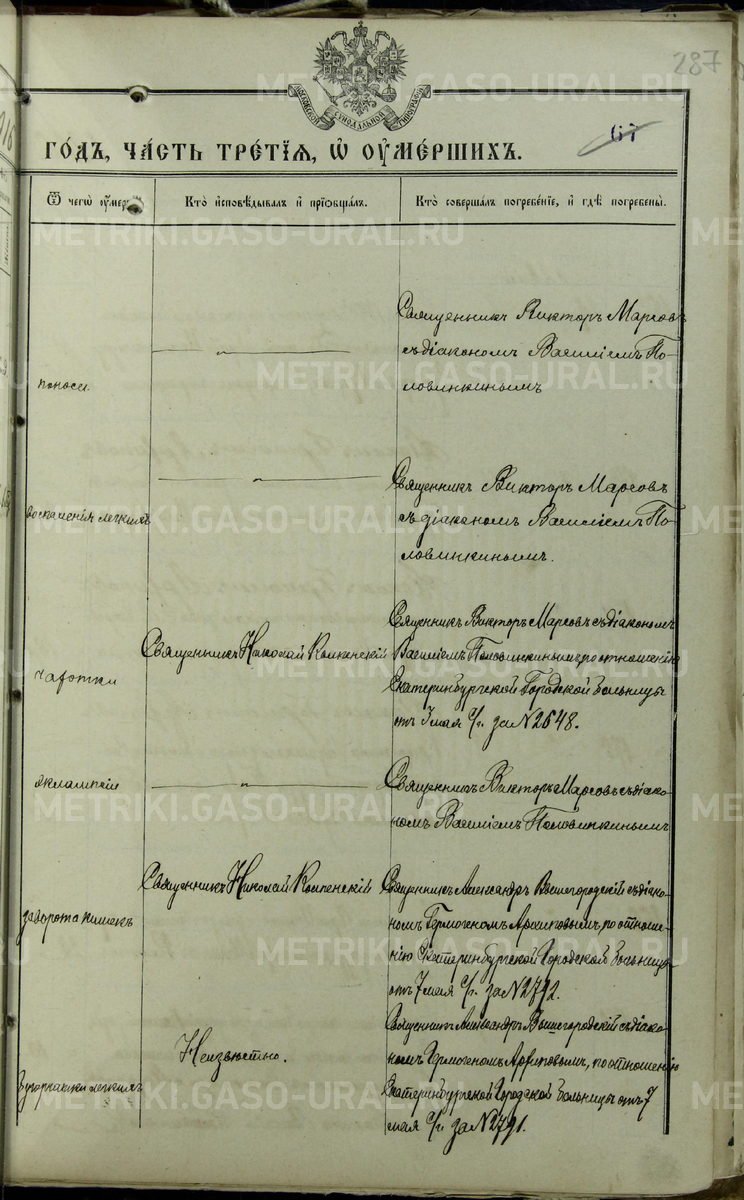 287
МОСКОВСКОЙ СѴНОДАЛЬНОЙ ТИПОГРАФІИ
67
ГО́ДЪ, ЧА́СТЬ ТРЕ́ТІЯ, Ѽ ОУ҆МЕ́РШИХЪ.
Ѿ чегѡ̀ оу҆мерли.
Кто̀ и҆сповѣ́дывалъ и҆ пріѻбща́лъ.
Кто̀ соверша́лъ погребе́ніе, и҆ гдѣ̀ погребены̀.
поноса
— „ —
Священникъ Викторъ Марсовъ
съ діакономъ Василіемъ По-
ловинкинымъ
воспаленія легкихъ
— „ —
Священникъ Викторъ Марсовъ
съ діакономъ Василіемъ По-
ловинкинымъ.
чахотки
Священникъ Николай
Священникъ Викторъ Марсовъ съ діакономъ
Василіемъ Половинкинымъ, по отношенію
Екатеринбургской Городской больницы
отъ 3 мая с/г. за № 2648.
эклампсіи
— „ —
Священникъ Викторъ Марсовъ съ діако-
номъ Василіемъ Половинкинымъ
заворота кишекъ
Священникъ Николай
Священникъ Александръ Вышегородскій съ діако-
номъ Гермогеномъ по отноше-
нію Екатеринбургской Городской больницы
отъ 7 мая с/г. за № 2792.
бугорчатки легкихъ
Неизвѣстно.
Священникъ Александръ Вышегородскій съ діако-
номъ Гермогеномъ по отношенію
Екатеринбургской Городской больницы отъ 7
мая с/г. за № 2791.
METRIKI.GASO-URAL.RU